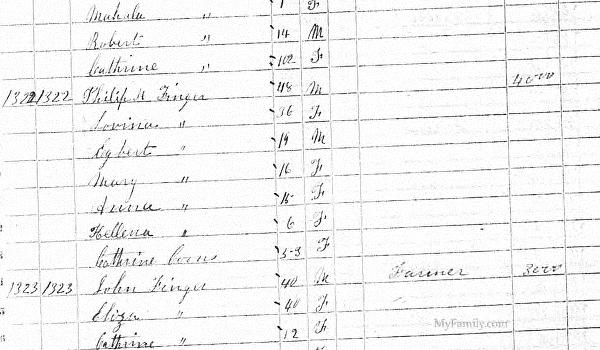 Mahala " 1 F
Robert " 14 M
Cathrine " 102 F
1322 1322 Philip H Finger 48 M 4000
Lovina " 36 F
Egbert " 19 M
Mary " 16 F
Anna " 15 F
Hellena " 6 F
Cathrine 53 F
1323 1323 John Finger 40 M Farmer 3000
Eliza " 40 F
Cathrine " 12 F
MyFamily.com